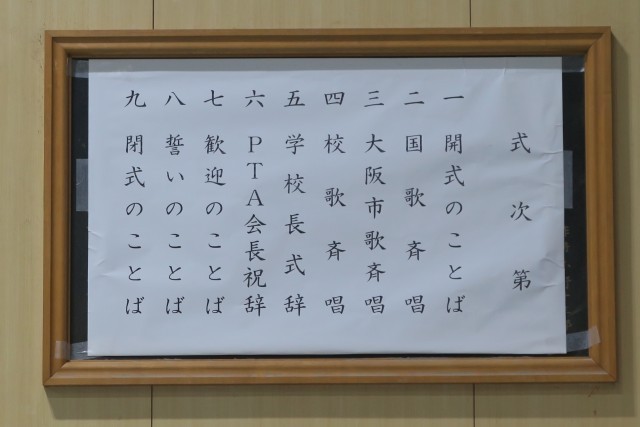 式次第
一 開式のことば
二 国歌斉唱
三 大阪市歌斉唱
四 校歌斉唱
五 学校長式辞
六 PTA会長祝辞
七 歓迎のことば
八 誓いのことば
九 閉式のことば